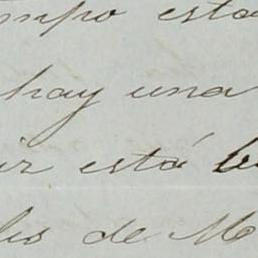 mpo esta
hay una
ir está b
les de M